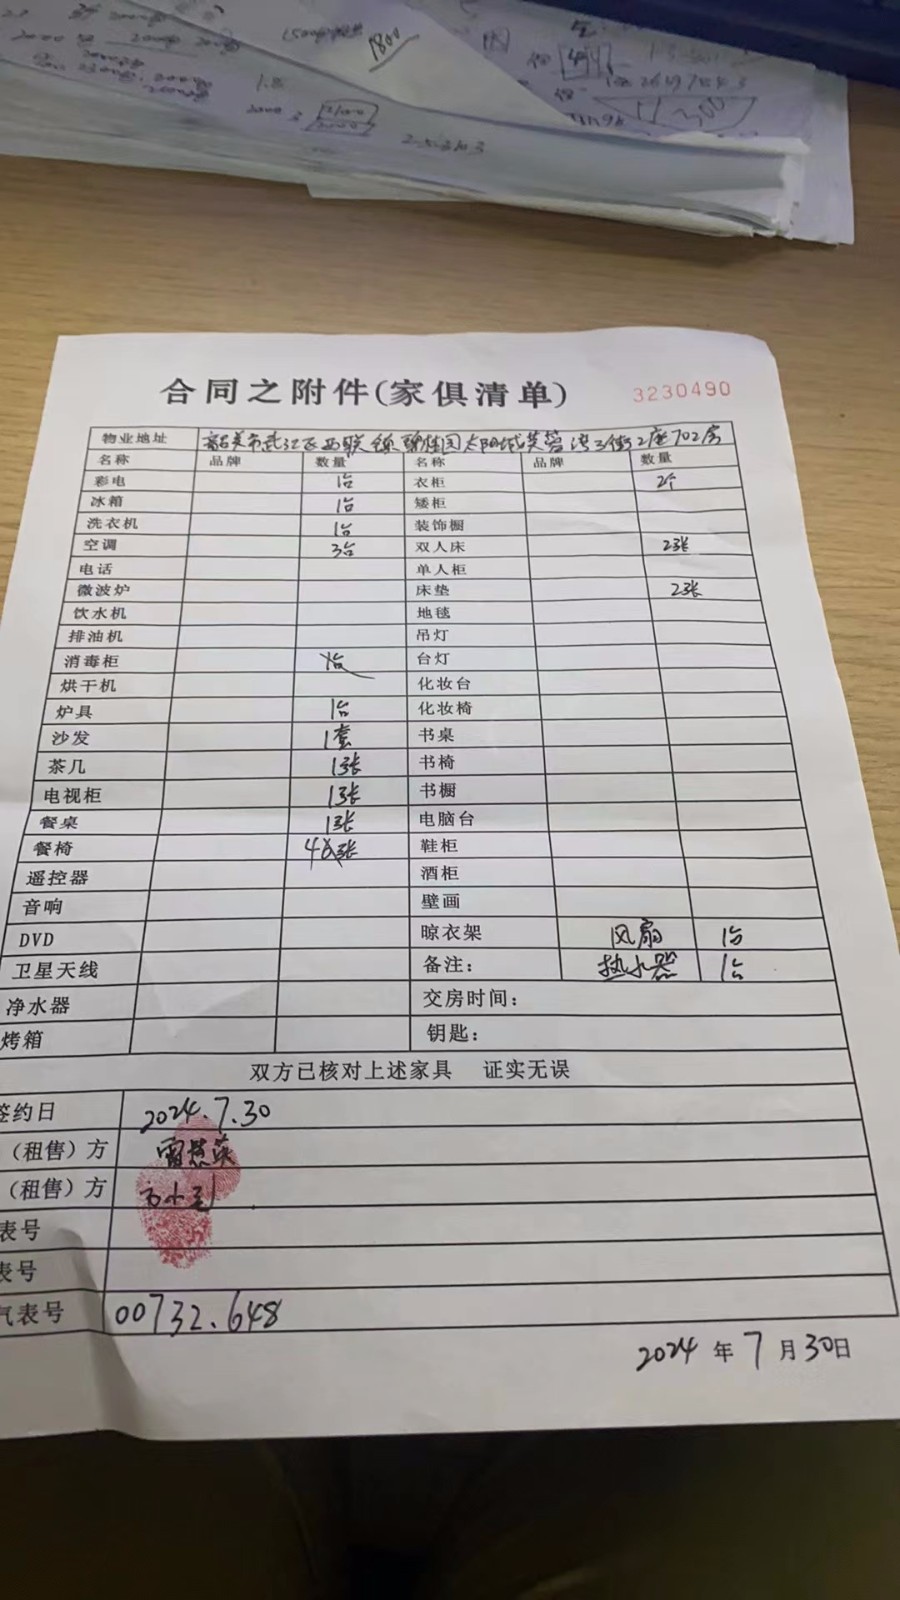 1800
合同之附件(家俱清单)
3230490
物业地址 韶关市武江区西联镇碧桂园太阳城芙蓉湾三街2座702房
名称 品牌 数量 名称 品牌 数量
彩电 1台 衣柜 2个
冰箱 1台 矮柜
洗衣机 1台 装饰橱
空调 3台 双人床 2张
电话 单人柜
微波炉 床垫 2张
饮水机 地毯
排油机 吊灯
消毒柜 1台 台灯
烘干机 化妆台
炉具 1台 化妆椅
沙发 1套 书桌
茶几 1张 书椅
电视柜 1张 书橱
餐桌 1张 电脑台
餐椅 4张 鞋柜
遥控器 酒柜
音响 壁画
DVD 晾衣架 风扇 1台
卫星天线 备注: 热水器 1台
净水器 交房时间:
烤箱 钥匙:
双方已核对上述家具 证实无误
签约日 2024.7.30
(租售)方 雷慧英
(租售)方
表号
表号
气表号 00732.648
2024 年 7 月 30日